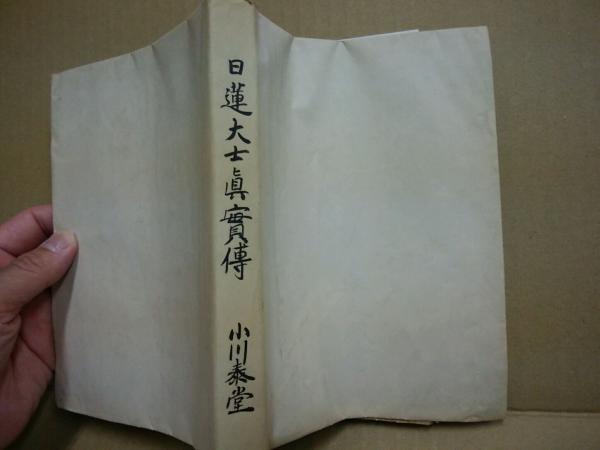 日蓮大士眞實傳
小川泰堂